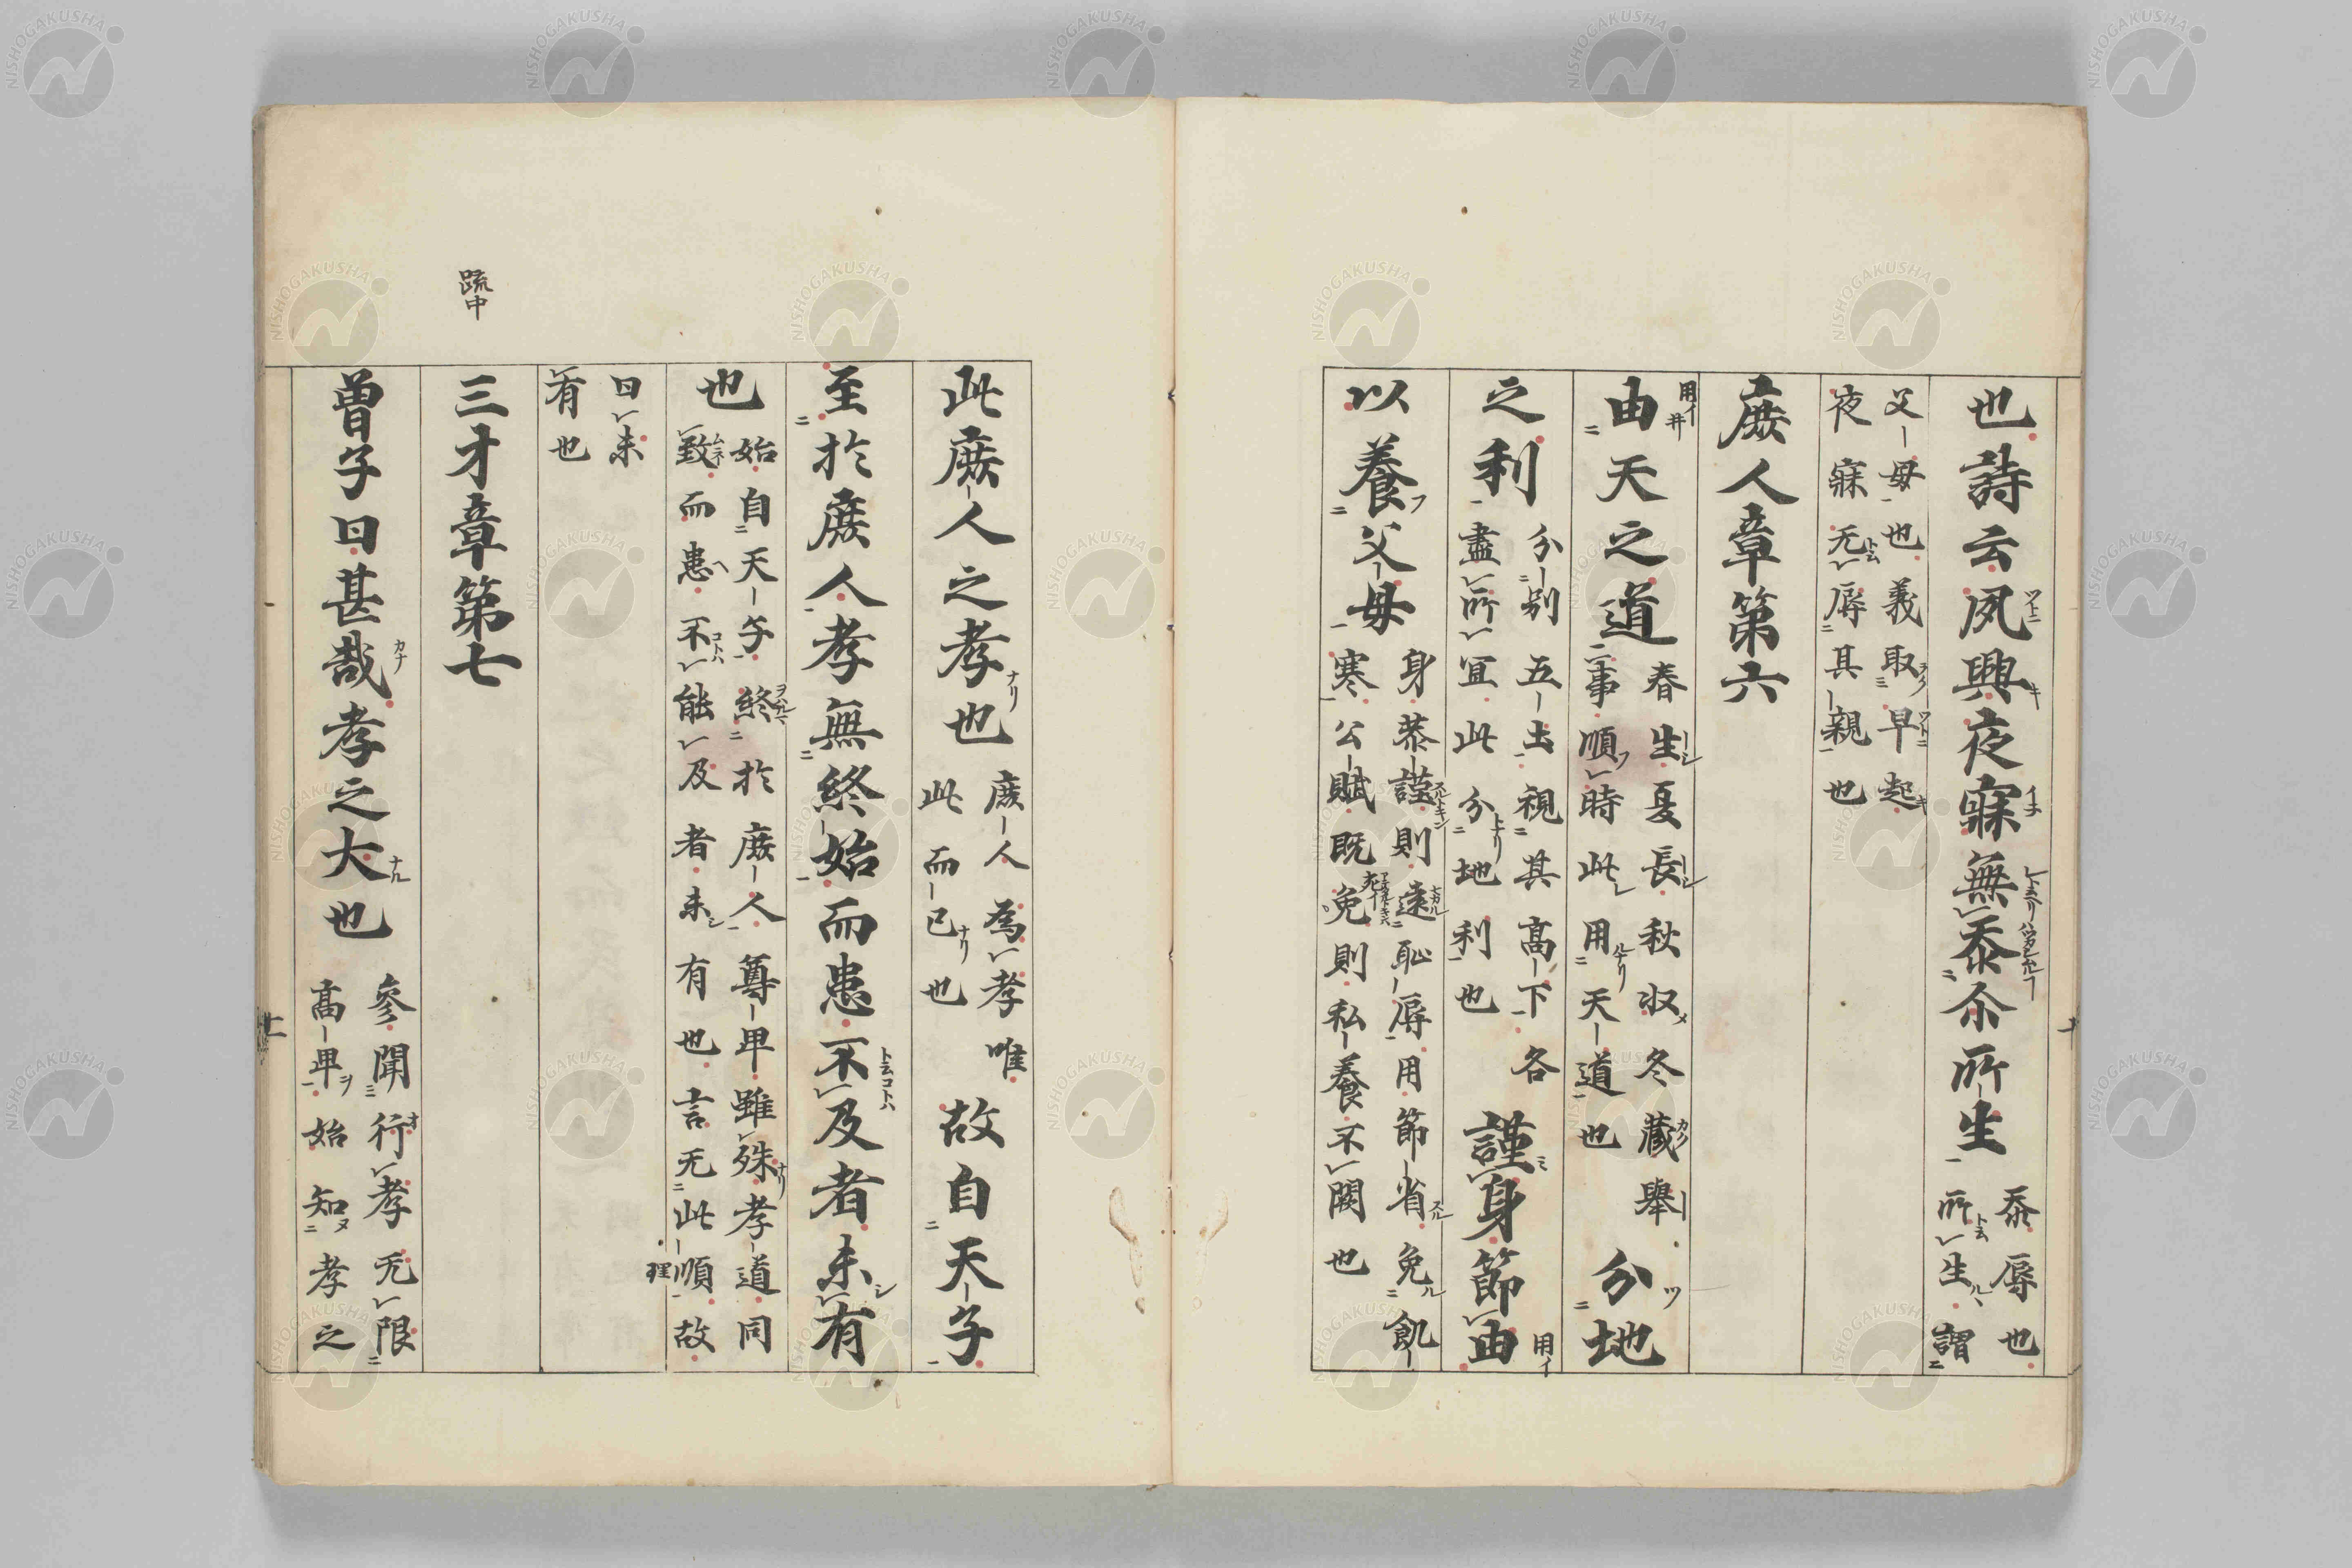 也詩云夙興夜寐無忝尒所生 忝辱也
所生謂
父母也義取早起
夜寐无辱其親也
庻人章第六
由天之道 春生夏長秋收冬藏舉
事順時此用天道也 分地
之利 分別五土視其髙下各
盡所宜此分地利也 謹身節由
以養父母 身恭謹則遠恥辱用節省免飢
寒公賦既免則私養不闕也
此庻人之孝也 庻人為孝唯
此而已也 故自天子
至於庻人孝無終始而患不及者未有
也 始自天子終於庻人尊卑雖殊孝道同
致而患不能及者未有也言无此順故
曰未
有也
三才章第七
曽子曰甚哉孝之大也 參聞行孝无限
髙卑始知孝之
䟽中
用イ
用イ
理
十
NISHOGAKUSHA